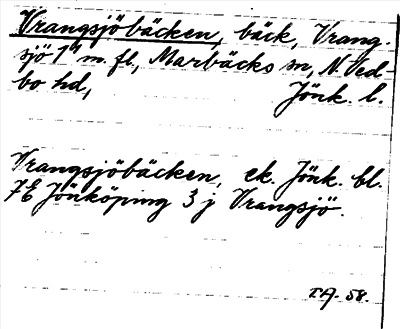 Vrangsjöbäcken, bäck, Vrang-
sjö 1⁴ m. fl., Marbäcks sn, N. Ved-
bo hd, Jönk. l.
Vrangsjöbäcken, ek. Jönk. bl.
7E Jönköping 3 j Vrangsjö.
T.A. 58.